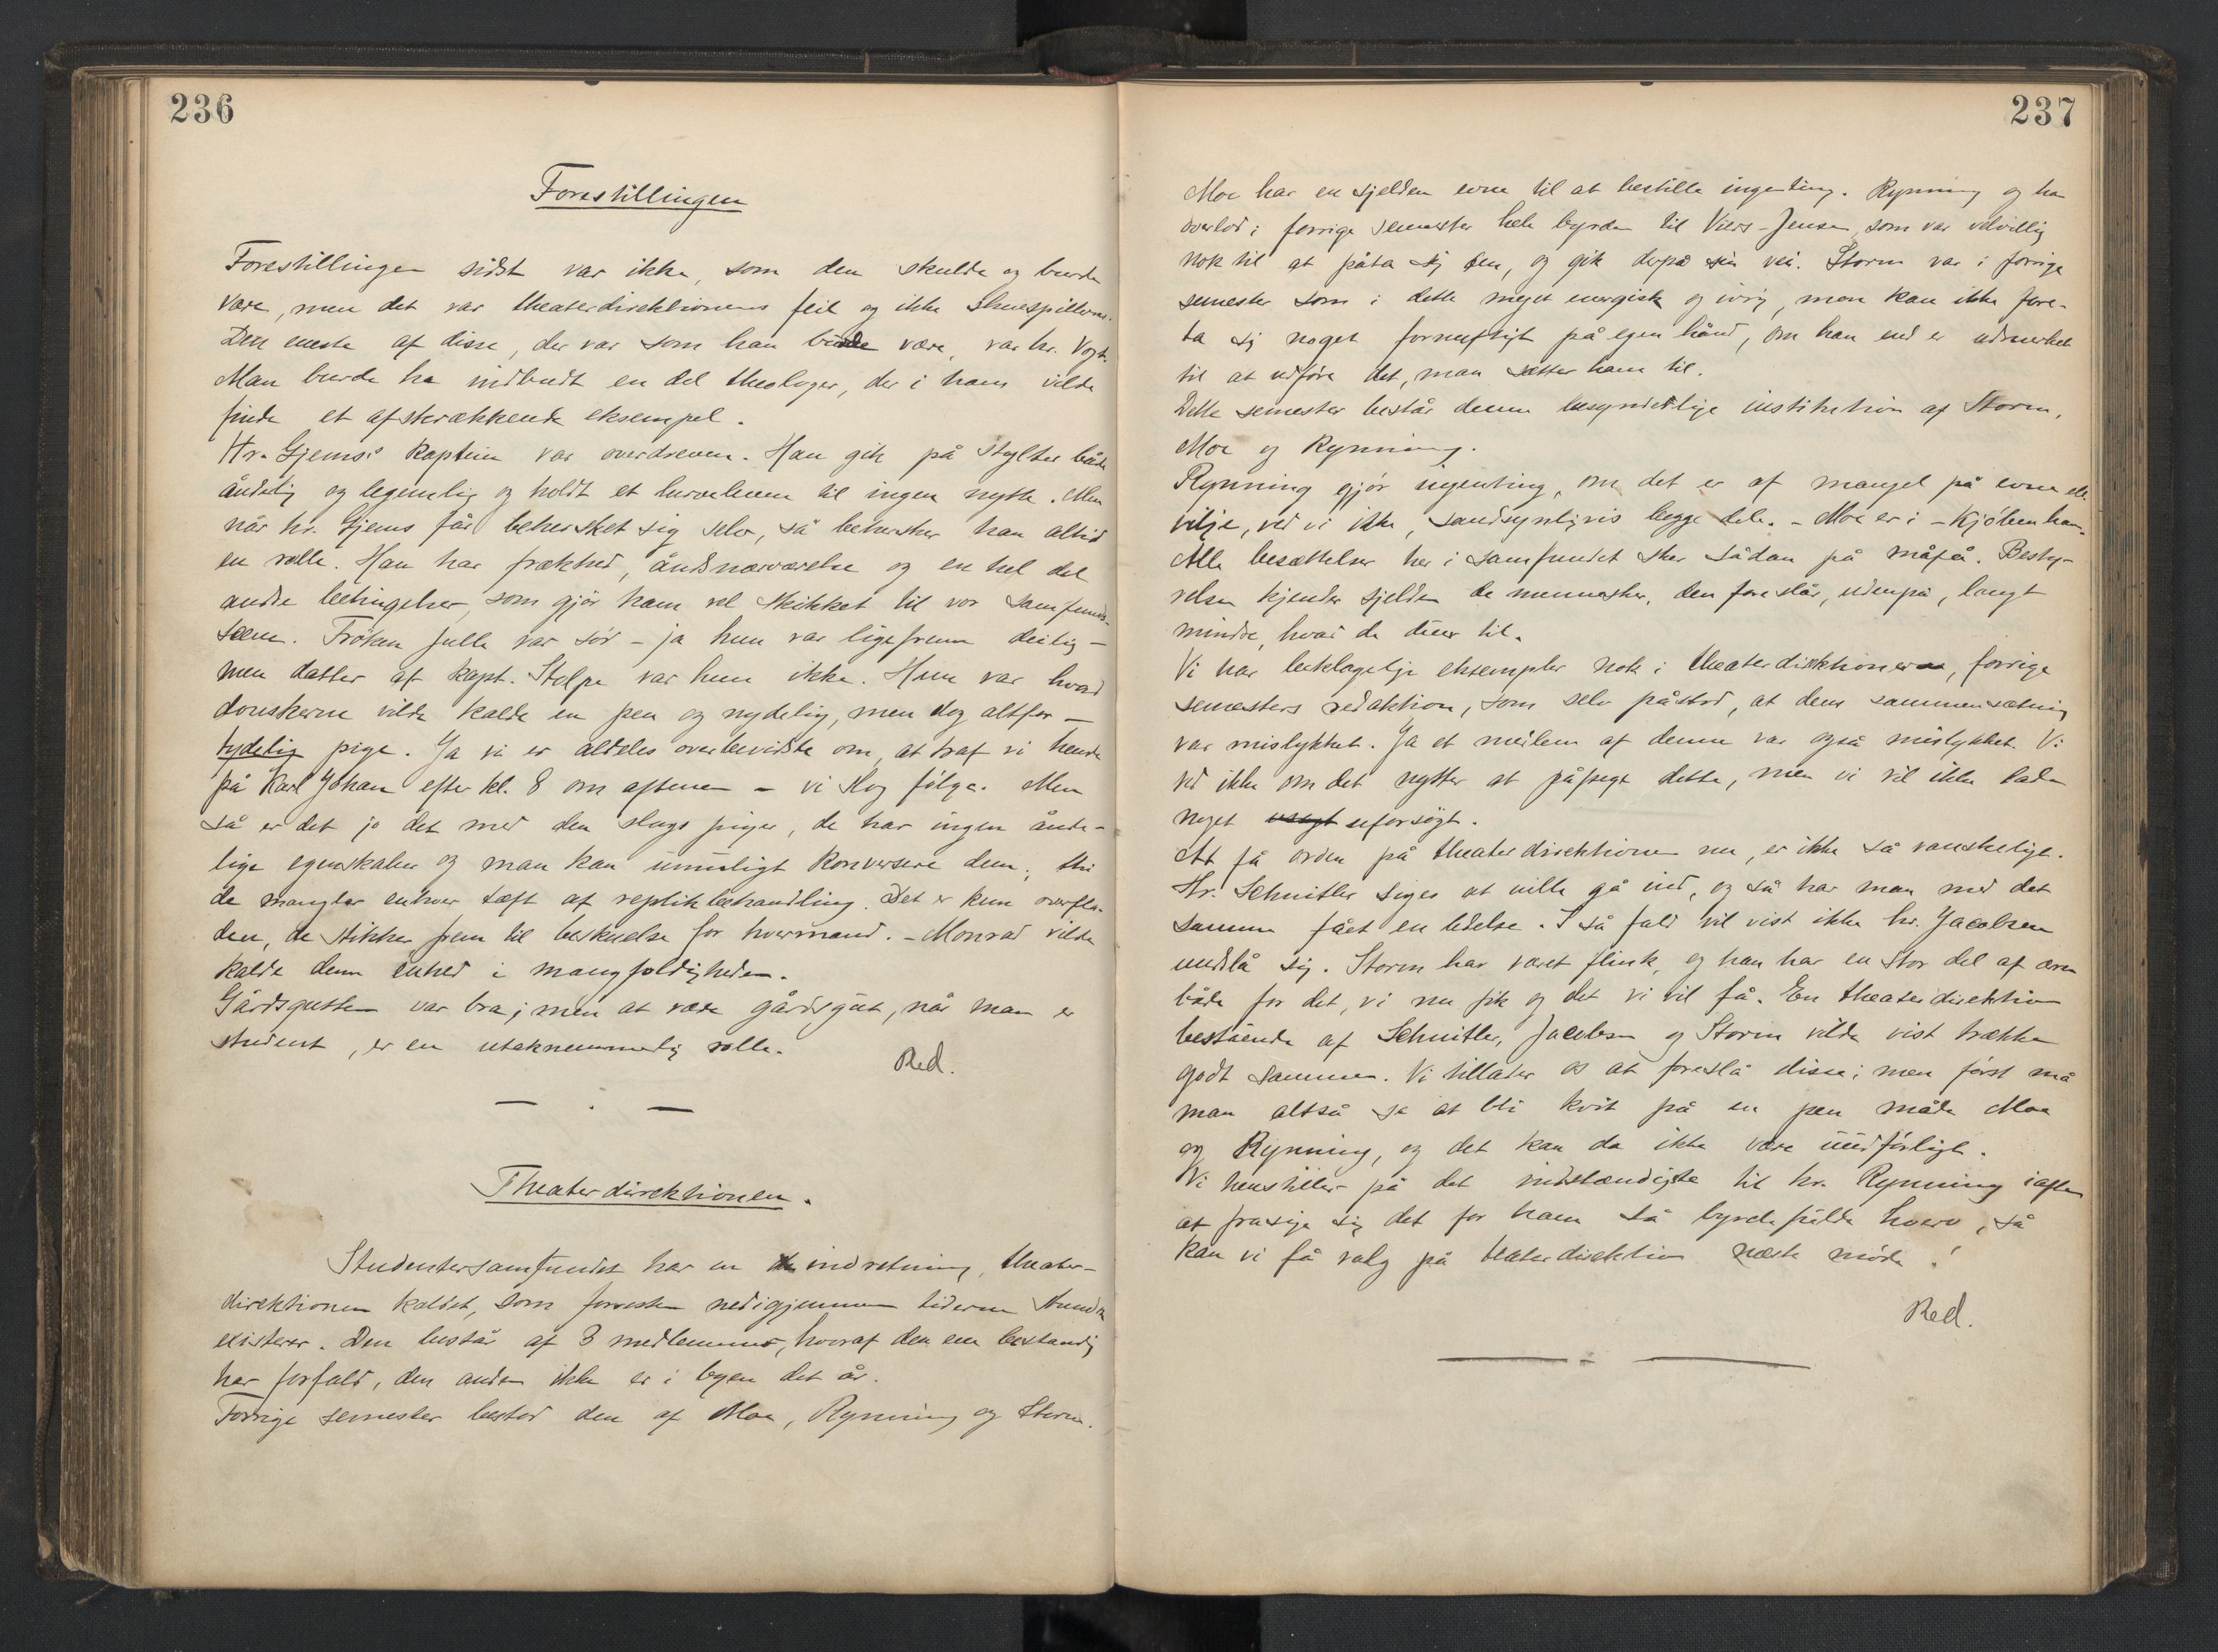 236
Forestillingen
Forestillingen sidst var ikke, som den skulde og burde
være, men det var theaterdirektionens feil og ikke skuespillerns.
Den eneste af disse, der var som han burde være, var hr. Vogt.
Man burde ha indbudt en del theologer, der i ham vilde
finde et afskrækkende eksempel.
Hr. Gjems's kaptein var overdreven. Han gik på stylter både
åndelig og legemlig og holdt et hurveleven til ingen nytte. Men
når hr. Gjems får behersket sig selv, så behersker han altid
en rolle. Han har frækhed, åndsnærværelse og en hel del
andre betingelser, som gjør ham vel skikket til vor samfunds-
scene. Frøken Julle var sød – ja hun var ligefrem deilig –
men datter af kapt. Stolpe var hun ikke. Hun var hvad
danskerne vilde kalde en pen og nydelig, men dog altfor –
tydelig pige. Ja vi er aldeles overbevidste om, at traf vi hende
på Karl Johan efter kl. 8 om aftenen – vi slog følge. Men
så er det jo det med den slags piger, de har ingen ånde-
lige egenskaber og man kan umuligt konversere dem; thi
de mangler enhver tæft af replikbehandling. Det er kun overfla-
den, de stikker frem til beskuelse for hvermand. – Monrad vilde
kalde dem enhed i mangfoldigheden.
Gårdsgutten var bra; men at være gårdsgut, når man er
student, er en utaknemmelig rolle.
Red.
— . —
Theaterdirektionen.
Studentersamfundet har en indretning, theater-
direktionen kaldet, som forresten nedigjennem tiderne
existerer. Den består af 3 medlemmer, hvoraf den ene bestandig
har forfald, den anden ikke er i byen det år.
Forrige semester bestod den af Moe, Rynning og Storm.
237
Moe har en sjelden evne til at bestille ingenting. Rynning og han
overlod i forrige semester hele byrden til Viers-Jensen, som var velvillig
nok til at påta sig den, og gik derpå sin vei. Storm var i forrige
semester som i dette meget energisk og ivrig, men kan ikke fore-
ta sig noget fornuftigt på egen hånd, om han end er udmerket
til at udføre det, man sætter ham til.
Dette semester består denne besynderlige institution af Storm,
Moe og Rynning.
Rynning gjør ingenting, om det er af mangel på evne eller
vilje, ved vi ikke, sandsynligvis begge dele. – Moe er i – Kjøbenhavn.
Alle besættelser her i samfundet sker sådan på måfå. Besty-
relsen kjender sjelden de mennesker, den foreslår, udenpå, langt
mindre, hvad de duer til.
Vi har beklagelige eksempler nok i theaterdirektionerne, forrige
semesters redaktion, som selv påstod, at dens sammensætning
var mislykket. Ja et medlem af denne var også mislykket. Vi
ved ikke om det nytter at påpege dette, men vi vil ikke lade
noget uforsøgt.
At få orden på theaterdirektionen nu, er ikke så vanskelige.
Hr. Schnitler siges at ville gå ind, og så har man med det
samme fået en ledelse. I så fald vil vist ikke hr. Jacobsen
undslå sig. Storm har været flink, og han har en stor del af æren
både for det, vi nu fik og det vi vil få. En theaterdirektion
bestående af Schnitler, Jacobsen og Storm vilde vist trække
godt sammen. Vi tillader os at foreslå disse; men først må
man altså se at bli kvit på en pen måde Moe
og Rynning, og det kan da ikke være
Vi henstiller på det indstændigste til hr. Rynning iaften
at frasige sig det for ham så byrdefulde hverv, så
kan vi få valg på theaterdirektion næste møde!
Red.